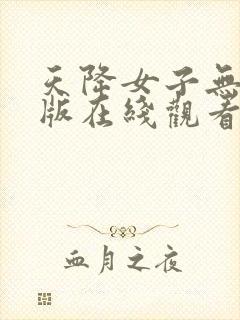 天降女子無
版在綫觀看
血月之夜